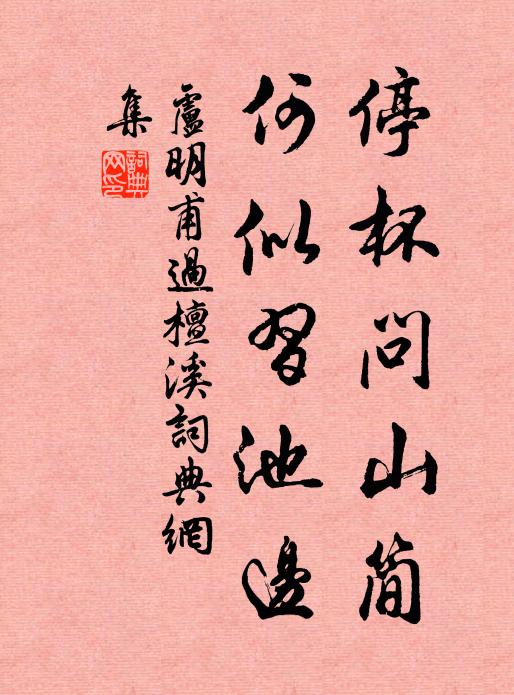 停杯問山簡
何似習池邊
盧明甫過檀溪詞典網
集
詞典
網印